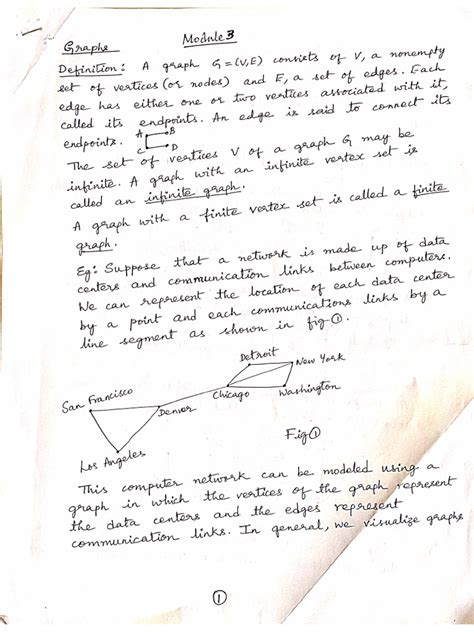 Module 3
Graphs
Definition: A graph G=(V,E) consists of V, a nonempty
set of vertices (or nodes) and E, a set of edges. Each
edge has either one or two vertices associated with it,
called its endpoints. An edge is said to connect its
endpoints. A B
C D
The set of vertices V of a graph G may be
infinite. A graph with an infinite vertex set is
called an infinite graph.
A graph with a finite vertex set is called a finite
graph.
Eg: Suppose that a network is made up of data
centers and communication links between computers.
We can represent the location of each data center
by a point and each communications links by a
line segment as shown in fig ①.
Detroit
New York
San Francisco
Denver
Chicago
Washington
Los Angeles
Fig ①
This computer network can be modeled using a
graph in which the vertices of the graph represent
the data centers and the edges represent
communication links. In general, we visualize graphs
①